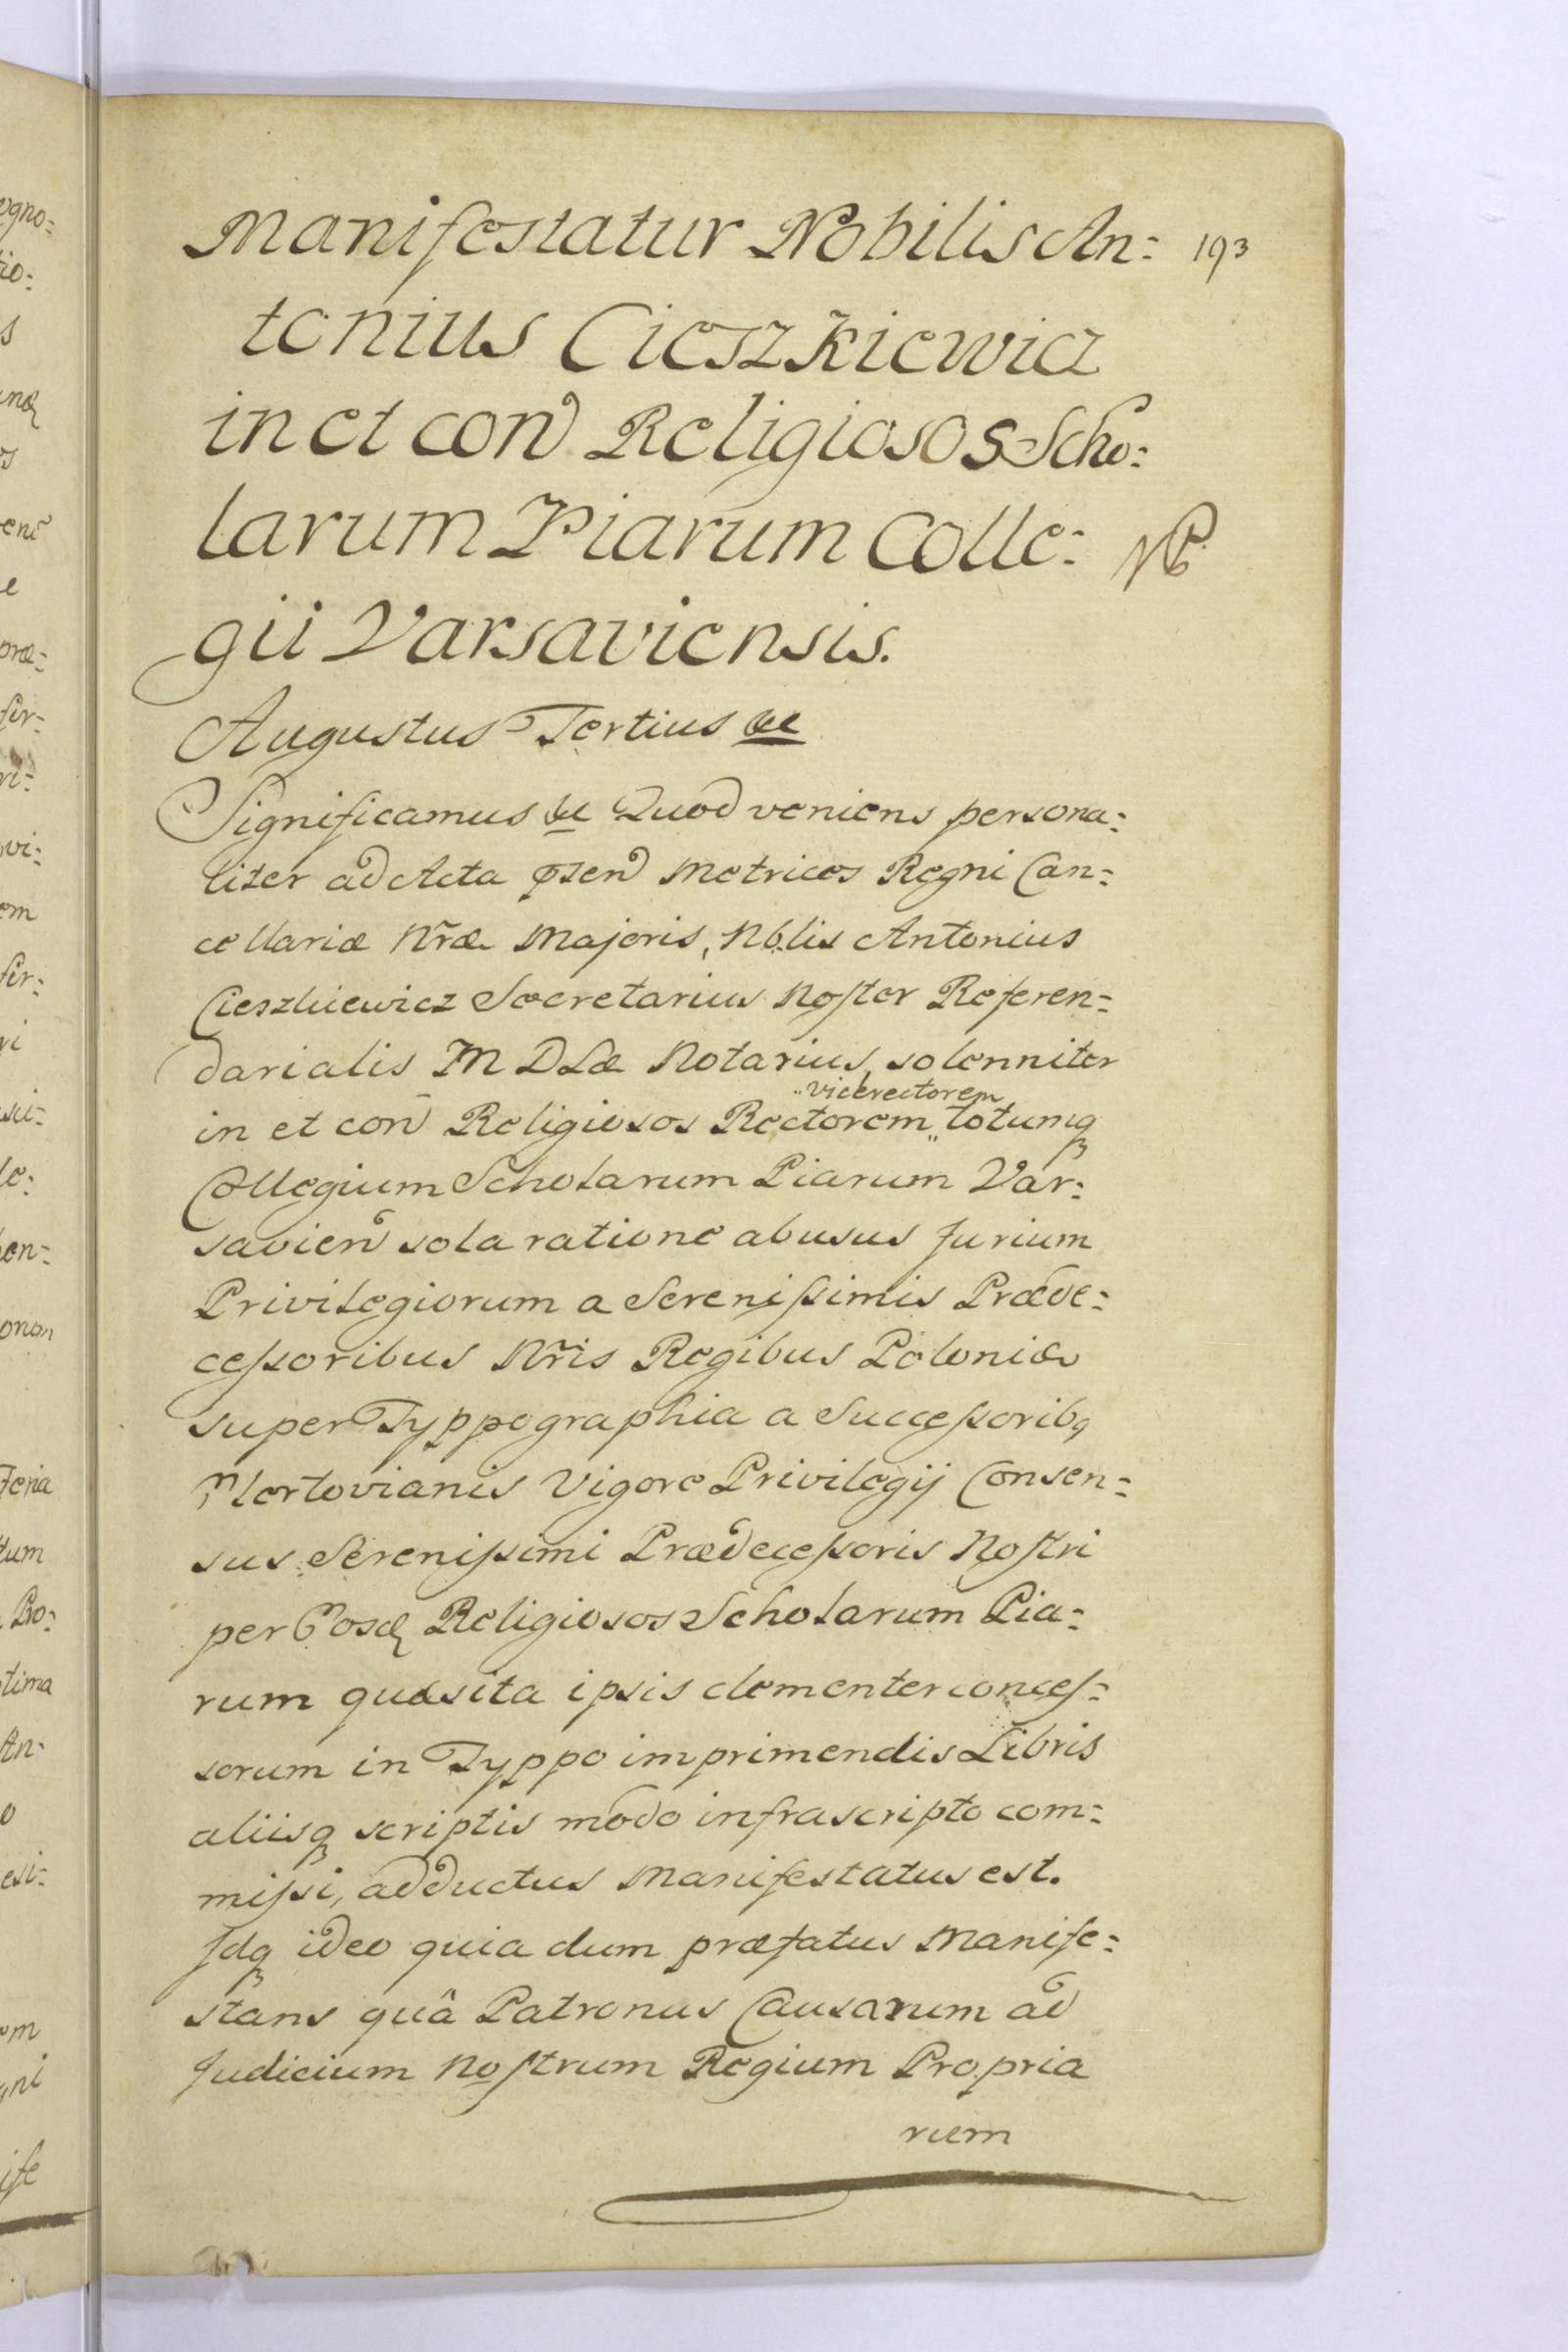 Manifestatur Nobilis An:
193
tonius Cieszkiewicz
in et con Religiosos Scho:
larum Piarum Colle:
NB
gii Varsaviensis.
Augustus Tertius &c
Significamus &c Quod veniens persona:
liter ad Acta pnten Metrices Regni Can:
cellariæ Nræ Majoris, Nblis Antonius
Cieszkiewicz Secretarius Noster Referen:
darialis M D Læ Notarius, solenniter
vicerectorem
in et con Religiosos Rectorem totumq
Collegium Scholarum Piarum Var:
savien sola ratione abusus Jurium
Privilegiorum a Serenissimis Præde:
cessoribus Nris Regibus Poloniæ
super Typpographia a Successoribq
Elertovianis Vigore Privilegij Consen:
sus Serenissimi Prædecessoris Nostri
per Eosd Religiosos Scholarum Pia:
rum quæsita ipsis clementer conces:
sorum in Typpo imprimendis Libris
aliisq scriptis modo infrascripto com:
missi, adductus Manifestatus est.
Idq ideo quia dum præfatus Manife:
stans quâ Patronus Causarum ad
Judicium Nostrum Regium Propria
rum